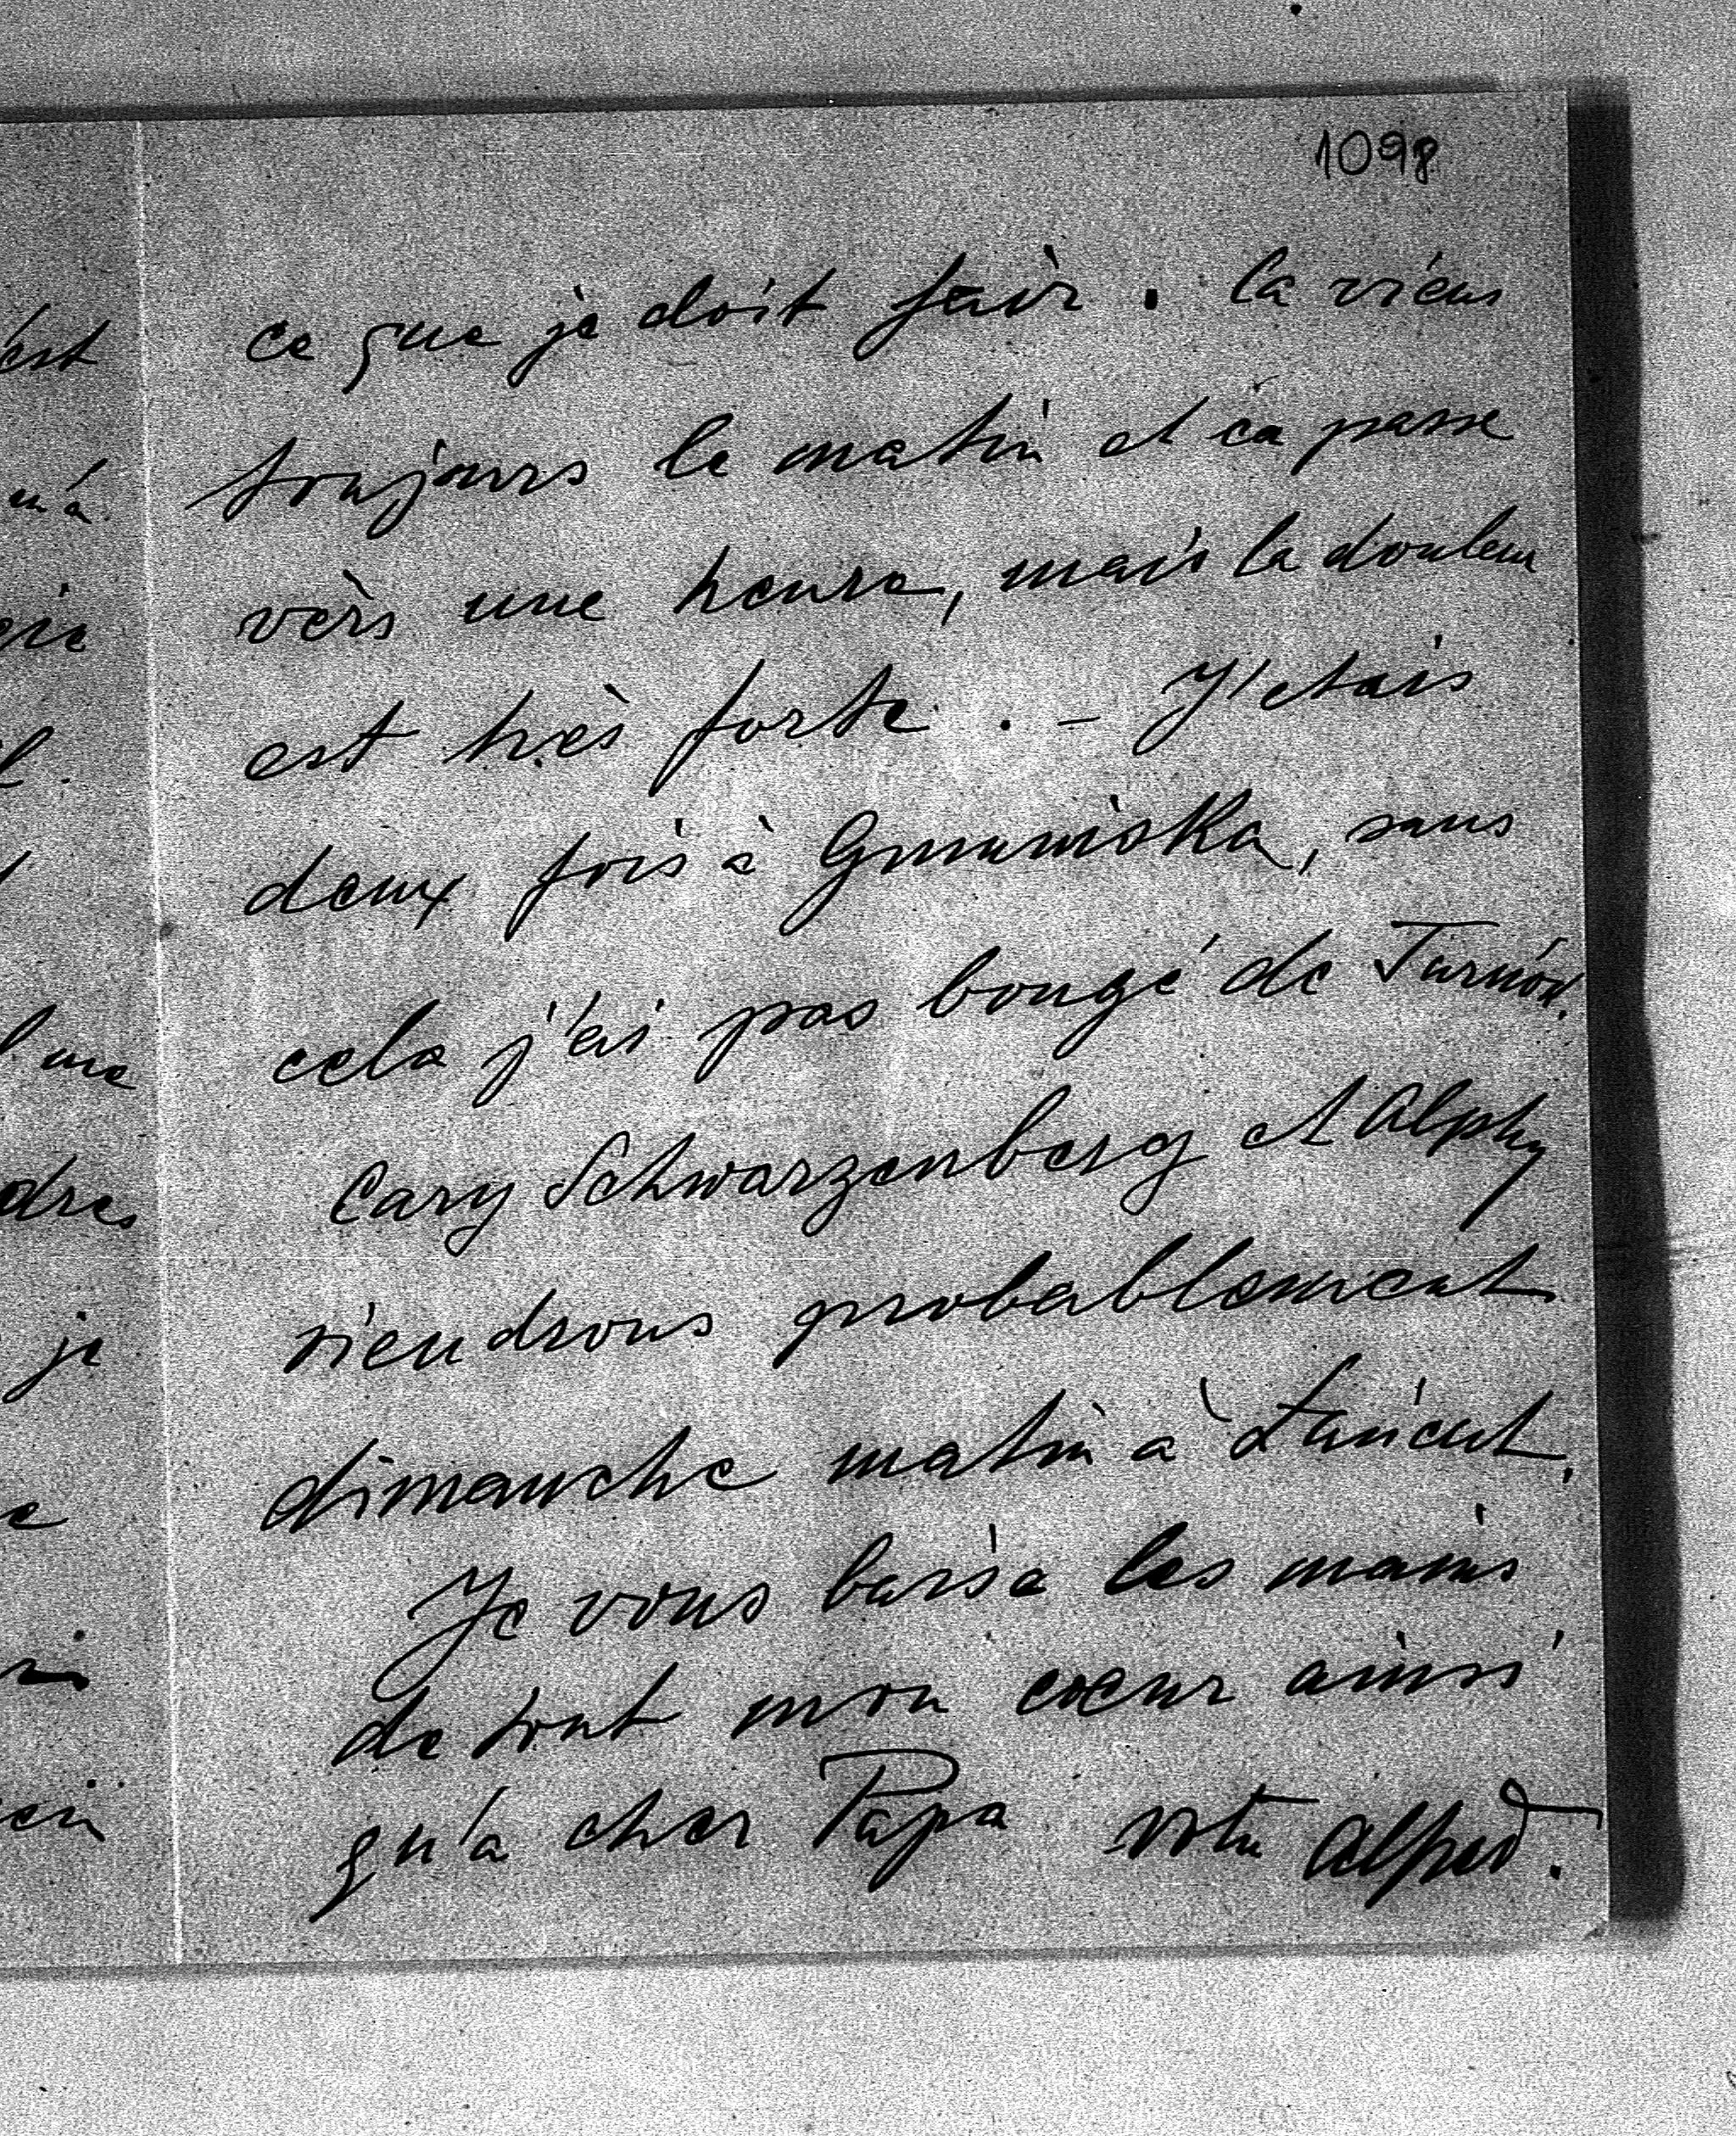 1098
ce que je doit fair. Ca viens
toujours le matin et ca passe
vèrs une heure, mais la douleur
est très forte. – J'etais
deux fois à Gumniska, sans
cela j'ai pas bougé de Turnów.
Cary Schwarzenberg et Alphy
viendrons probablement
dimanche matin à Łańcut.
Je vous baise les mains
de tout mon coeur ainsi
qu'à cher Papa votre Alfred.
est
je